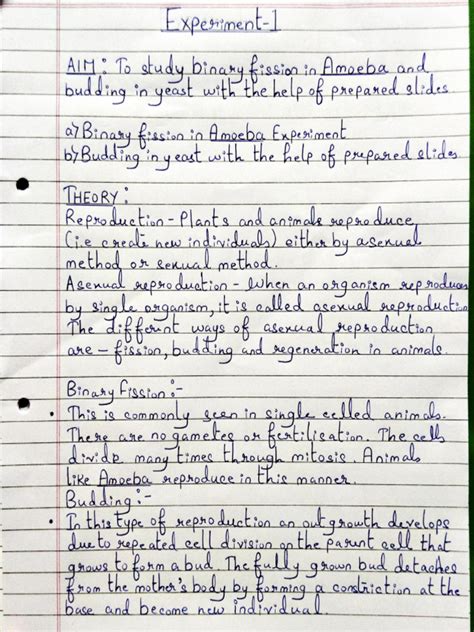 Experiment-1
AIM: To study binary fission in Amoeba and
budding in yeast with the help of prepared slides.
a) Binary fission in Amoeba Experiment
b) Budding in yeast with the help of prepared slides.
THEORY:
Reproduction - Plants and animals reproduce
(i.e create new individuals) either by asexual
method or sexual method.
Asexual reproduction - When an organism reproduces
by single organism, it is called asexual reproduction
The different ways of asexual reproduction
are - fission, budding and regeneration in animals.
Binary Fission:-
• This is commonly seen in single celled animals.
There are no gametes or fertilisation. The cells
divide many times through mitosis. Animals
like Amoeba reproduce in this manner.
Budding:-
• In this type of reproduction an outgrowth develops
due to repeated cell division on the parent cell that
grows to form a bud. The fully grown bud detaches
from the mother's body by forming a constriction at the
base and become new individual.